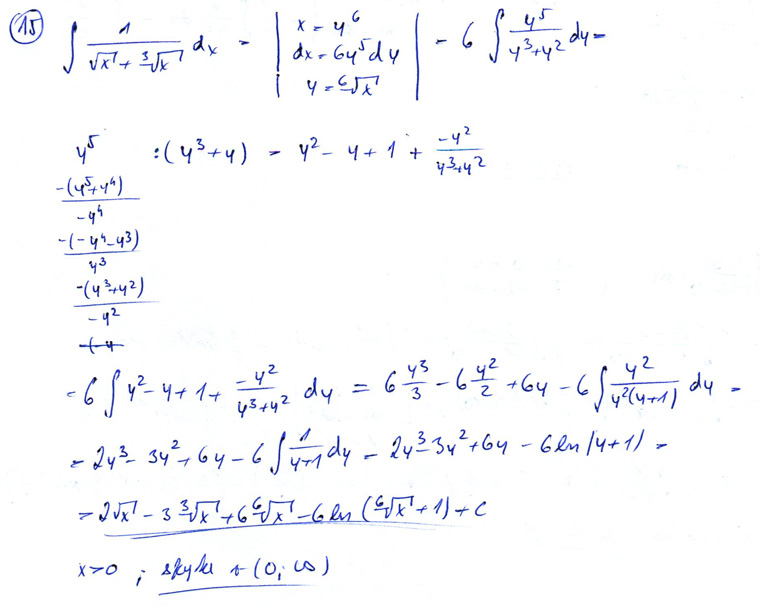 15 ∫ 1/(√x + ∛x) dx = | x = y⁶ dx = 6y⁵dy y = ⁶√x | = 6 ∫ y⁵/(y³+y²) dy =
y⁵ : (y³+y) = y² - y + 1 + -y²/(y³+y²)
-(y⁵+y⁴)
-y⁴
-(-y⁴-y³)
y³
-(y³+y²)
-y²
-(-y
= 6 ∫ y² - y + 1 + -y²/(y³+y²) dy = 6 y³/3 - 6 y²/2 + 6y - 6 ∫ y²/(y²(y+1)) dy =
= 2y³ - 3y² + 6y - 6 ∫ 1/(y+1) dy = 2y³ - 3y² + 6y - 6 ln |y+1) =
= 2√x - 3 ∛x + 6 ⁶√x - 6 ln (⁶√x + 1) + c
x>0 ; (0; ∞)